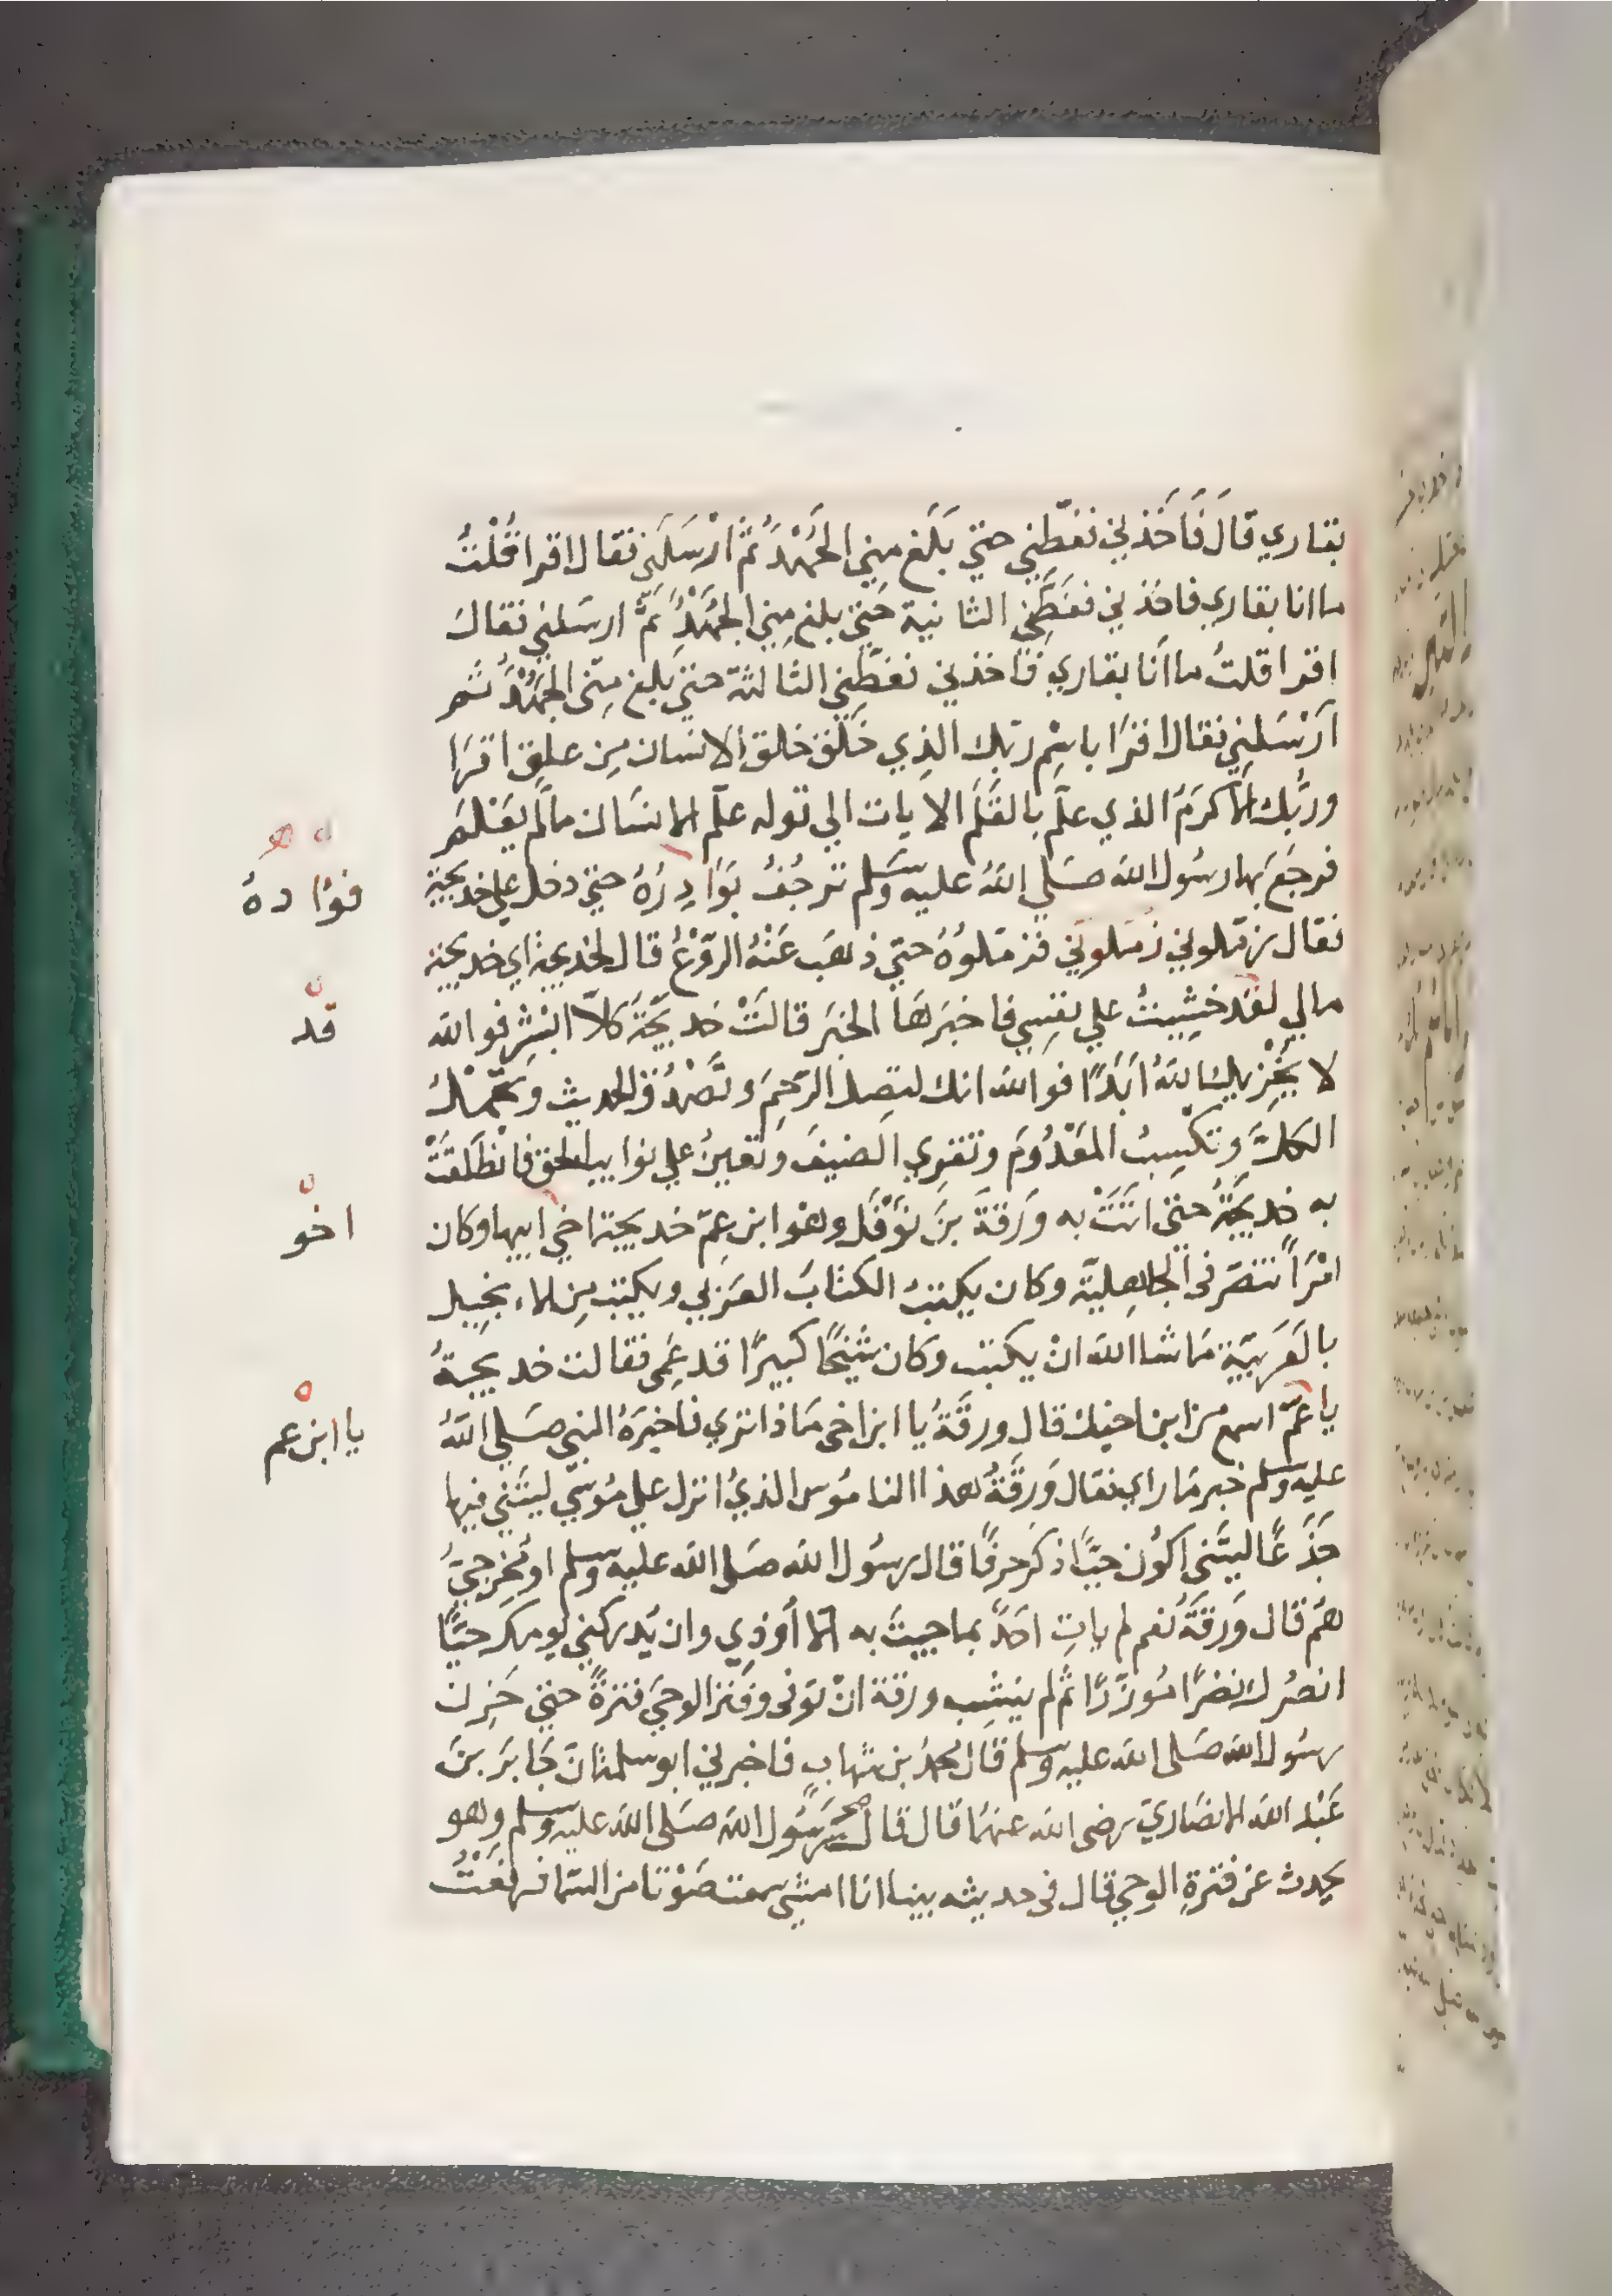 بقاري قَالَ فَاَخَذني فغَطَّنِي حتي بَلَغ مِني الجَهْدَُ ثُمَّ ارْسَلَنِي فقال اقرا قُلْتُ
ما انا بقاري فاخَذني فغَطَّنِي الثانية حَتي بلغ مِني الجَهْدَُ ثمَّ ارسَلني فقال
اقرا قلتُ ما اَنا بقاري فَاخذني فغطَّنِي الثالثة حتي بَلغ مِنّي الجَهْدَُ ثم
اَرْسَلنِي فقال اقرَا باسْمِ ربّك الذِي خَلَق خلق الانسان مِن علقٍ اقرَا
وربُّك الاَكرَمُ الذي علّم بالقَلَم الايات الي قوله علّم الانسَان مالَم يَعْلم
فرجَعَ بها رسُول الله صَلي اللهُ عليه وَسَلم تَرجُفُ بَوَادِرُهُ حتي دخل علي خديجة
فقال زمّلوني زَمّلوني فزمّلوُهُ حتي ذهَب عَنْهُ الرَّوْعُ قال لخديجة اي خديجة
مالي لقد خشِيتُ علي نفسِي فاخبَرهَا الخبَر قالَتْ خديجَة كلاّ ابْشِر فوالله
لا يُخْزِيك اللهُ اَبَدًا فوالله انك لتصِل الرَّحِمَ وتَصْدُقُ الحديث وَتحْمِلُ
الكلَّ وتكْسِبُ المَعْدُومَ وتقرِي الضيفَ وتُعينُ علي نوايب الحق فانْطَلَقَتْ
به خديجَةُ حتي اتَتْ به وَرَقةَ بنَ نَوْفَل وهو ابن عمِّ خديجة اخي ابيها وكان
امْرَاً تنصّر في الجاهِليَّة وكان يكتبُ الكتابَ العَرَبي ويكتب مِن الانجيل
بالعَرَبيّة مَا شا الله انْ يكتب وكان شَيْخًا كبيرًا قد عَمِي فقالت خديجةُ
يا عَمّ اسمع من ابن اخيك قال ورقةُ يا ابن اخي مَاذا تري فاخبَرهُ النبي صَلي اللهُ
عليه وسلم خبر مَا راي فقال وَرقةُ هذا النامُوس الذيُ انزل علي مُوسَي ليتَني فيها
جَذَعًا ليتَني اكوُن حيًّا ذكَر حرفًا قال رسُول الله صَلي الله عليه وسلم اوَمُخرِجيَّ
هُم قال وَرقَةُ نعم لم ياتِ احَدٌ بما جيتَ به الا أُوذِي وان يُدركني يومك حيًّا
انصُرك نصْرًا مُؤَزّرًا ثم لم ينشب ورقة انْ توفي وفَتَر الوحيَ فترةً حتي حَزِن
رسُول الله صَلي الله عليه وسلم قال محمد بن شهابٍ فاخبرني ابو سلمة انّ جَابَرَ بنَ
عَبْد الله الانصَاريَ رضي الله عنهمَا قال قال رَسُول الله صَلي الله عليه وسلم وهو
يحدث عن فترةِ الوحي قال في حديثه بينا انا امشي سمعت صَوْتا من السّما فرفعْتُ
فؤَادهُ
قد
اخو
يا ابن عم